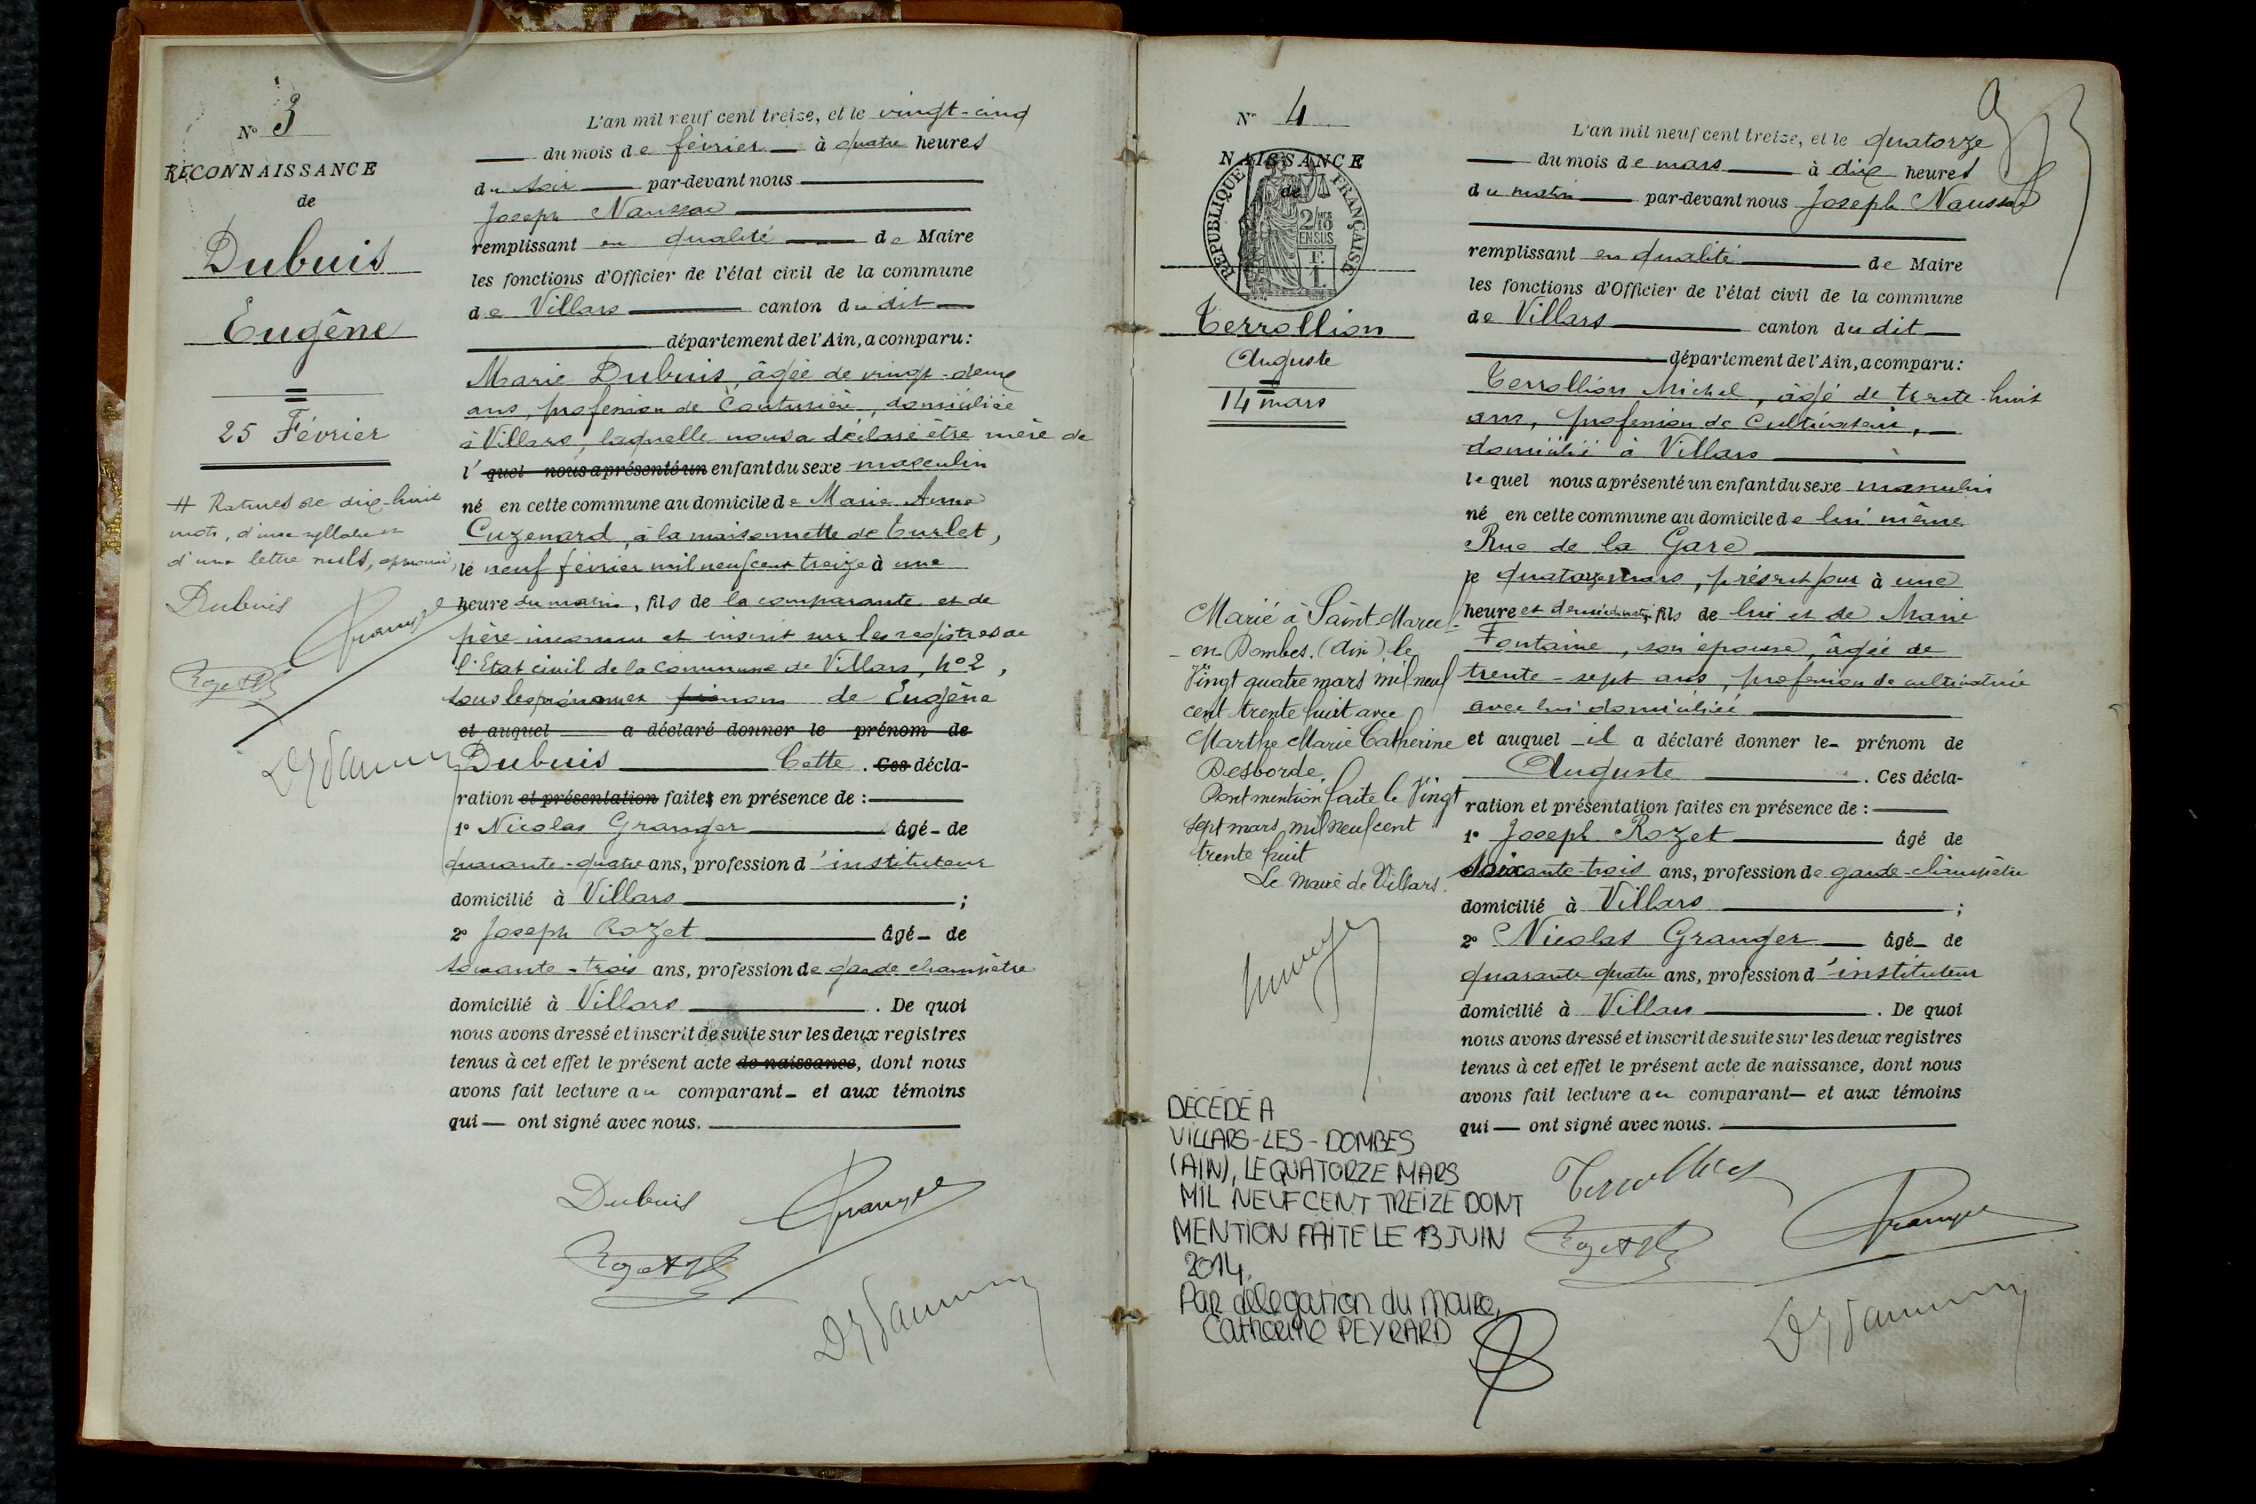 N° 3
RECONNAISSANCE
de
Dubuis
Eugène
25 Février
# Ratures de dix-huit
mots, d'une syllabe et
d'une lettre nuls, approuvé,
Dubuis
L'an mil neuf cent treize, et le vingt-cinq
du mois de février à quatre heures
du soir par-devant nous
Joseph Naussac
remplissant en qualité de Maire
les fonctions d'Officier de l'état civil de la commune
de Villars canton du dit
département de l'Ain, a comparu:
Marie Dubuis, âgée de vingt-deux
ans, profession de Couturière, domiciliée
à Villars, laquelle nous a déclaré être mère de
l' quel nous a présenté un enfant du sexe masculin
né en cette commune au domicile de Marie Anne
Cuzenard, à la maisonnette de Turlet,
le neuf février mil neuf cent treize à une
heure du matin, fils de la comparante et de
père inconnu et inscrit sur les registres de
l'Etat civil de la commune de Villars, n° 2,
sous les prénoms et nom de Eugène
et auquel a déclaré donner le prénom de
Dubuis Cette . Ces décla-
ration et présentation faites en présence de :
1° Nicolas Granger âgé - de
quarante-quatre ans, profession d'instituteur
domicilié à Villars ;
2° Joseph Rozet âgé - de
soixante-trois ans, profession de garde champêtre
domicilié à Villars . De quoi
nous avons dressé et inscrit de suite sur les deux registres
tenus à cet effet le présent acte de naissance, dont nous
avons fait lecture au comparant - et aux témoins
qui — ont signé avec nous.
Dubuis
N° 4
NAISSANCE
de
RÉPUBLIQUE FRANÇAISE
2/10
EN SUS
F.
1.
Terrollion
Auguste
14 mars
Marié à Saint-Marcel-
en Dombes. (Ain) le
Vingt quatre mars mil neuf
cent trente huit avec
Marthe Marie Catherine
Desborde.
Dont mention faite le Vingt
sept mars mil neuf cent
trente huit
Le Maire de Villars.
DÉCÉDÉ A
VILLARS-LES-DOMBES
(AIN), LE QUATORZE MARS
MIL NEUF CENT TREIZE DONT
MENTION FAITE LE 13 JUIN
2014.
Par délégation du maire,
Catherine PEYRARD
L'an mil neuf cent treize, et le quatorze
du mois de mars à dix heures
du matin par-devant nous Joseph Naussac
remplissant en qualité de Maire
les fonctions d'Officier de l'état civil de la commune
de Villars canton du dit
département de l'Ain, a comparu:
Terrollion Michel, âgé de trente-huit
ans, profession de Cultivateur,
domicilié à Villars
lequel nous a présenté un enfant du sexe masculin
né en cette commune au domicile de lui même
Rue de la Gare
le quatorze mars, présent jour à une
heure et demie du matin, fils de lui et de Marie
Fontaine, son épouse, âgée de
trente-sept ans, profession de cultivatrice
avec lui domiciliée
et auquel il a déclaré donner le prénom de
Auguste . Ces décla-
ration et présentation faites en présence de :
1° Joseph Rozet âgé de
soixante-trois ans, profession de garde-champêtre
domicilié à Villars ;
2° Nicolas Granger âgé - de
quarante quatre ans, profession d'instituteur
domicilié à Villars . De quoi
nous avons dressé et inscrit de suite sur les deux registres
tenus à cet effet le présent acte de naissance, dont nous
avons fait lecture au comparant — et aux témoins
qui — ont signé avec nous.